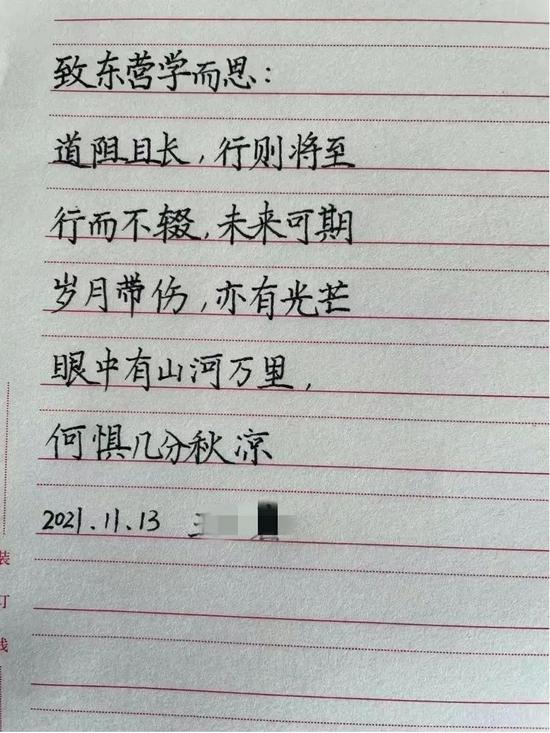 致东营学而思：
道阻且长，行则将至
行而不辍，未来可期
岁月带伤，亦有光芒
眼中有山河万里，
何惧几分秋凉
2021.11.13
装
订
线